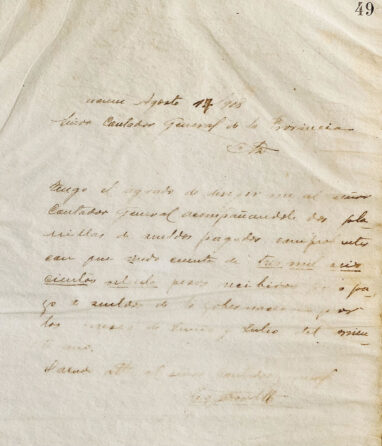 49
Agosto 17/908
Señor Contador General de la Provincia
Tengo el agrado de dirijirme al señor
Contador General acompañandole dos pla-
nillas de sueldos pagados
con que rindo cuenta de tres mil seis
cientos pesos recibidos pa-
go a sueldos de la gobernacion por
los meses de Junio y Julio del
año.
Saluda Atte al señor contador